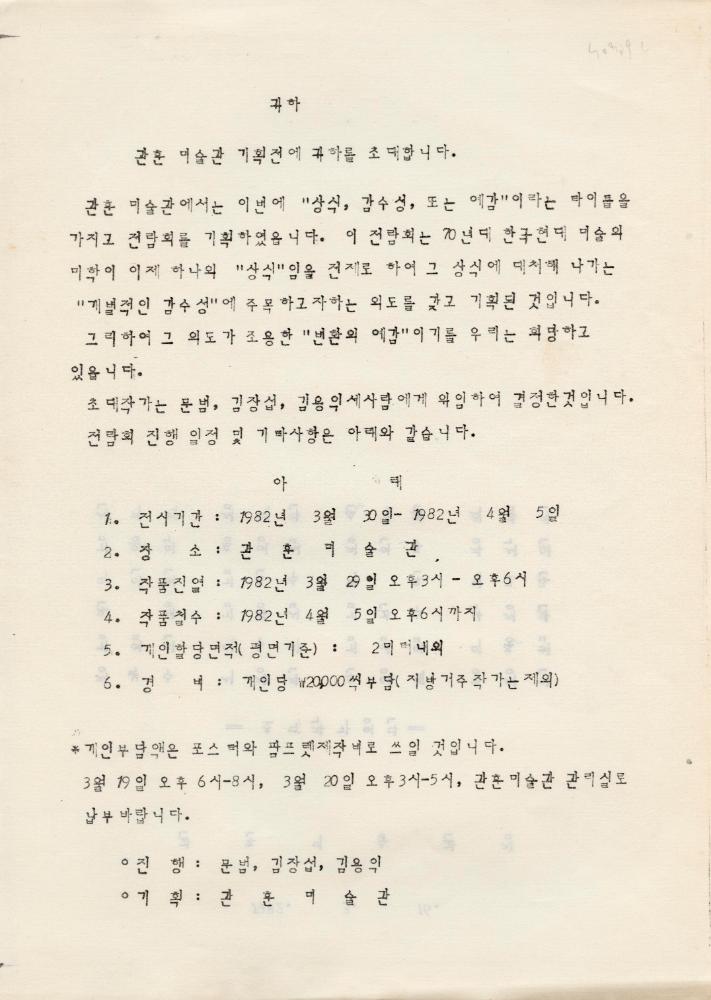 귀하
관훈 미술관 기획전에 귀하를 초대합니다.
관훈 미술관에서는 이번에 "상식, 감수성, 또는 예감"이라는 타이틀을
가지고 전람회를 기획하였읍니다. 이 전람회는 70년대 한국현대 미술의
미학이 이제 하나의 "상식"임을 전제로 하여 그 상식에 대처해 나가는
"개별적인 감수성"에 주목하고자하는 의도를 갖고 기획된 것입니다.
그리하여 그 의도가 조용한 "변환의 예감"이기를 우리는 희망하고
있읍니다.
초대작가는 문범, 김장섭, 김용익세사람에게 위임하여 결정한것입니다.
전람회 진행 일정 및 기타사항은 아래와 같습니다.
아 래
1. 전시기간 : 1982년 3월 30일- 1982년 4월 5일
2. 장 소 : 관 훈 미 술 관
3. 작품진열 : 1982년 3월 29일 오후3시 - 오후6시
4. 작품철수 : 1982년 4월 5일 오후6시까지
5. 개인할당면적(평면기준) : 2미터내외
6. 경 비 : 개인당 ₩20,000씩부담(지방거주작가는제외)
*개인부담액은 포스터와 팜프렛제작비로 쓰일 것입니다.
3월 19일 오후 6시-8시, 3월 20일 오후3시-5시, 관훈미술관 관리실로
납부바랍니다.
ㅇ진 행 : 문범, 김장섭, 김용익
ㅇ기 획 : 관 훈 미 술 관